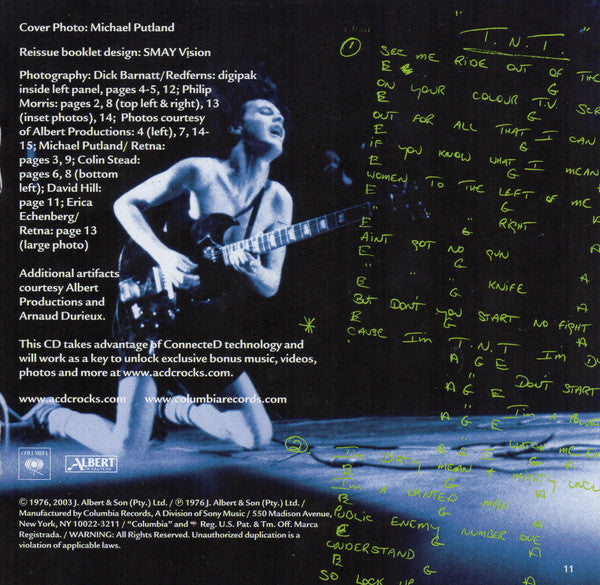 Cover Photo: Michael Putland
Reissue booklet design: SMAY Vision
Photography: Dick Barnatt/Redferns: digipak
inside left panel, pages 4-5, 12; Philip
Morris: pages 2, 8 (top left & right), 13
(inset photos), 14; Photos courtesy
of Albert Productions: 4 (left), 7, 14-
15; Michael Putland/ Retna:
pages 3, 9; Colin Stead:
pages 6, 8 (bottom
left); David Hill:
page 11; Erica
Echenberg/
Retna: page 13
(large photo)
Additional artifacts
courtesy Albert
Productions and
Arnaud Durieux.
This CD takes advantage of ConnecteD technology and
will work as a key to unlock exclusive bonus music, videos,
photos and more at www.acdcrocks.com.
www.acdcrocks.com www.columbiarecords.com
COLUMBIA
ALBERT
© 1976, 2003 J. Albert & Son (Pty.) Ltd. / ℗ 1976 J. Albert & Son (Pty.) Ltd. /
Manufactured by Columbia Records, A Division of Sony Music / 550 Madison Avenue,
New York, NY 10022-3211 / "Columbia" and Reg. U.S. Pat. & Tm. Off. Marca
Registrada. / WARNING: All Rights Reserved. Unauthorized duplication is a
violation of applicable laws.
"T.N.T."
1 SEE ME RIDE OUT OF THE
E G
ON YOUR COLOUR T.V. SCR
E G
OUT FOR ALL THAT I CAN
E G
IF YOU KNOW WHAT I MEAN
E G
WOMEN TO THE LEFT OF ME
E G A
" " " " RIGHT
E G A
AINT GOT NO GUN
E G A
" " " KNIFE
E G A
BUT DON'T YOU START NO FIGHT
E G A
* CAUSE I'm T.N.T. I'm DY
A G E
DON'T START
A G E
A G E
2 I'm DIRTY MEAN + MIGHTY UNCL
E G A
I'm A WANTED MAN
E G A
PUBLIC ENEMY NUMBER ONE
E G A
UNDERSTAND
E G A
SO LOCK UP
11